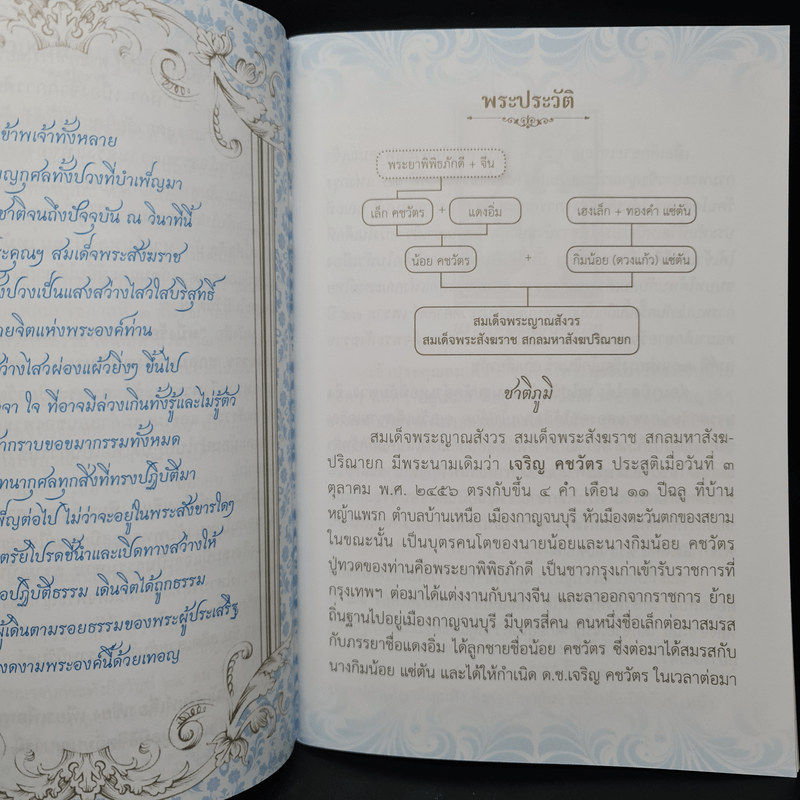 ข้าพเจ้าทั้งหลาย
ญกุศลทั้งปวงที่บำเพ็ญมา
ชาติจนถึงปัจจุบัน ณ วินาทีนี้
ะคุณฯ สมเด็จพระสังฆราช
ปวงเป็นแสงสว่างไสวใสบริสุทธิ์
ายจิตแห่งพระองค์ท่าน
ว่างไสวผ่องแผ้วยิ่งๆ ขึ้นไป
จา ใจ ที่อาจมีล่วงเกินทั้งรู้และไม่รู้ตัว
ากราบขอขมากรรมทั้งหมด
ทนากุศลทุกสิ่งที่ทรงปฏิบัติมา
พ็ญต่อไป ไม่ว่าจะอยู่ในพระสังขารใดๆ
ตรัยโปรดชี้นำและเปิดทางสว่างให้
อปฏิบัติธรรม เดินจิตได้ถูกธรรม
ผู้เดินตามรอยธรรมของพระผู้ประเสริฐ
งดงามพระองค์นี้ด้วยเทอญ
พระประวัติ
พระยาพิพิธภักดี + จีน
เล็ก คชวัตร + แดงอิ่ม เฮงเล็ก + ทองคำ แซ่ตัน
น้อย คชวัตร + กิมน้อย (ดวงแก้ว) แซ่ตัน
สมเด็จพระญาณสังวร
สมเด็จพระสังฆราช สกลมหาสังฆปริณายก
ชาติภูมิ
สมเด็จพระญาณสังวร สมเด็จพระสังฆราช สกลมหาสังฆ-
ปริณายก มีพระนามเดิมว่า เจริญ คชวัตร ประสูติเมื่อวันที่ ๓
ตุลาคม พ.ศ. ๒๔๕๖ ตรงกับขึ้น ๔ ค่ำ เดือน ๑๑ ปีฉลู ที่บ้าน
หญ้าแพรก ตำบลบ้านเหนือ เมืองกาญจนบุรี หัวเมืองตะวันตกของสยาม
ในขณะนั้น เป็นบุตรคนโตของนายน้อยและนางกิมน้อย คชวัตร
ปู่ทวดของท่านคือพระยาพิพิธภักดี เป็นชาวกรุงเก่าเข้ารับราชการที่
กรุงเทพฯ ต่อมาได้แต่งงานกับนางจีน และลาออกจากราชการ ย้าย
ถิ่นฐานไปอยู่เมืองกาญจนบุรี มีบุตรสี่คน คนหนึ่งชื่อเล็กต่อมาสมรส
กับภรรยาชื่อแดงอิ่ม ได้ลูกชายชื่อน้อย คชวัตร ซึ่งต่อมาได้สมรสกับ
นางกิมน้อย แซ่ตัน และได้ให้กำเนิด ด.ช.เจริญ คชวัตร ในเวลาต่อมา